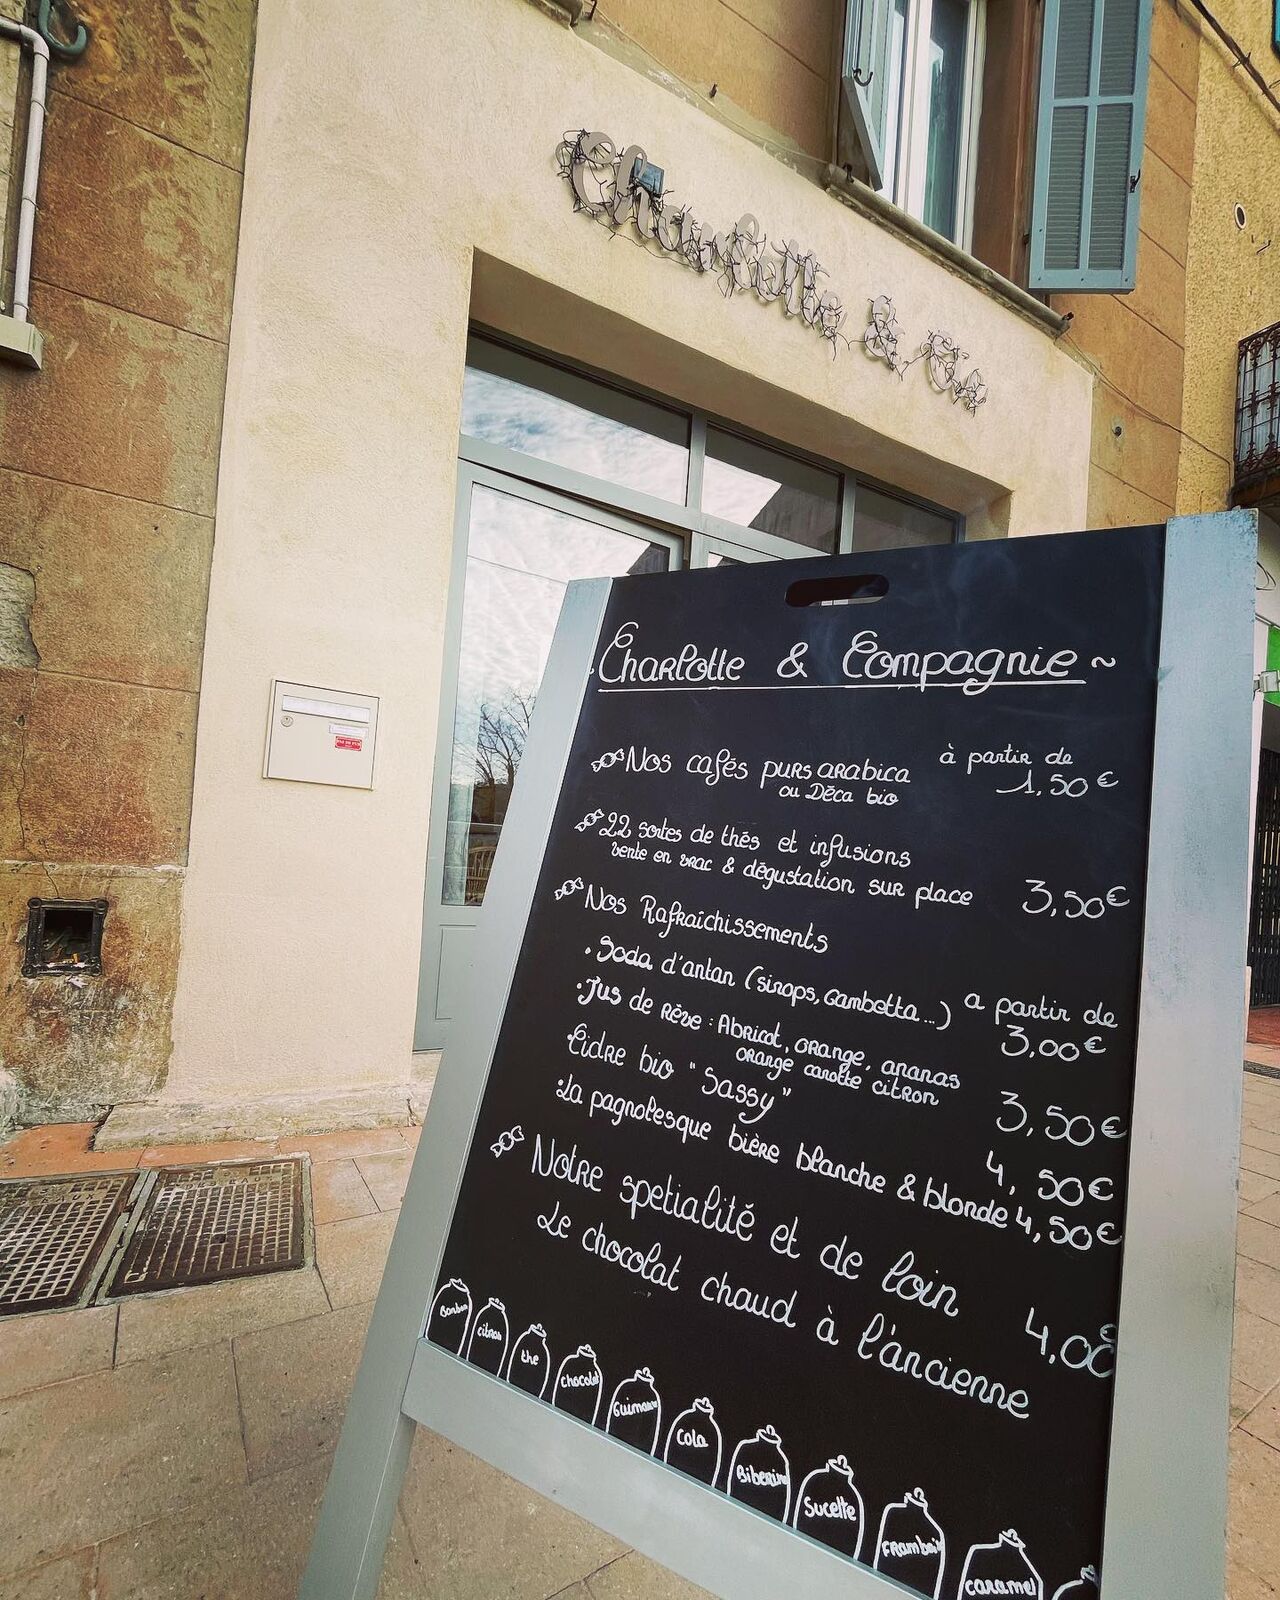 Charlotte & Cie
Charlotte & Compagnie ~
Nos cafés purs arabica à partir de
ou Déca bio 1,50€
22 sortes de thés et infusions
vente en vrac & dégustation sur place 3,50€
Nos Rafraîchissements
. Soda d'antan (sirops, Gambetta...) a partir de
3,00€
. Jus de rêve : Abricot, orange, ananas
orange carotte citron 3,50€
Cidre bio "Sassy" 4,50€
. La pagnolesque bière blanche & blonde 4,50€
Notre spetialité et de loin
Le chocolat chaud à l'ancienne 4,00€
Bonbon
citron
thé
chocolat
Guimauve
Cola
Biberine
Sucette
Framboi
caramel